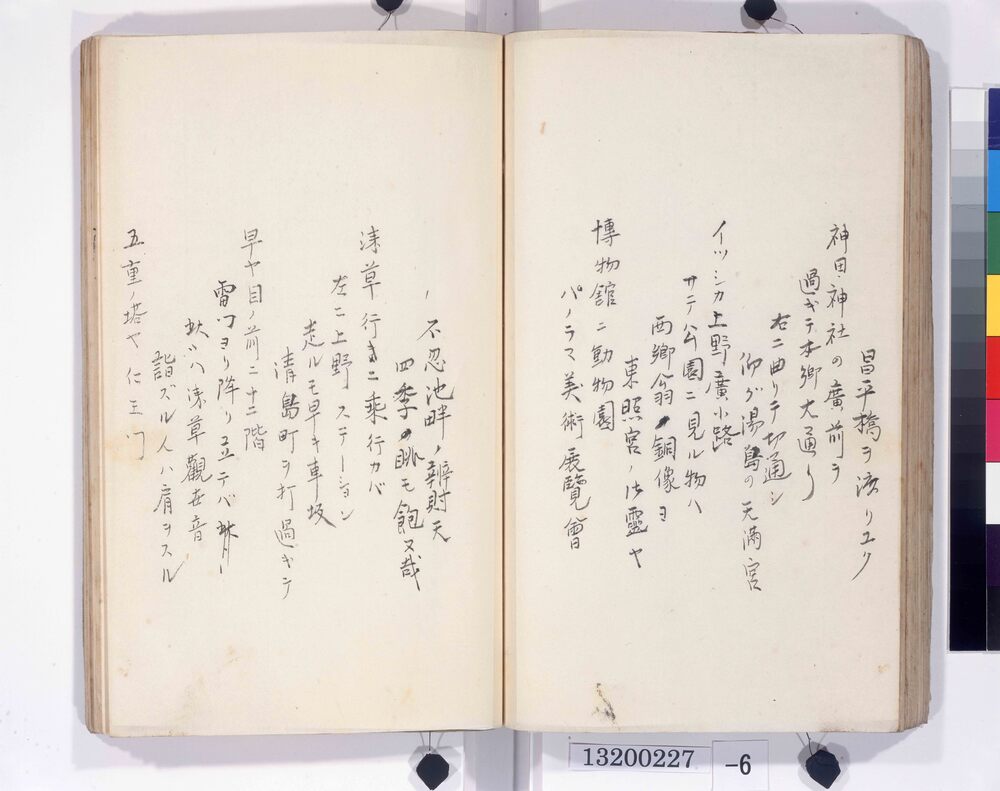 昌平橋ヲ渡リユク
神田神社の廣前ヲ
過ギテ本郷大通り
右ニ曲リテ切通シ
仰グ湯島の天満宮
イツシカ上野廣小路
サテ公園ニ見ル物ハ
西郷翁ノ銅像ヨ
東照宮ノ御靈ヤ
博物館ニ動物園
パノラマ美術展覽會
不忍池畔ノ辨財天
四季の眺モ飽ヌ哉
淺草行きニ乘行カバ
左ニ上野ステーション
走ルモ早キ車坂
清島町ヲ打過ギテ
早ヤ目ノ前ニ十二階
雷门ヨリ降り立テバ
淺草觀世音
詣ズル人ハ肩ヲスル
五重ノ塔ヤ仁王门
13200227
-6